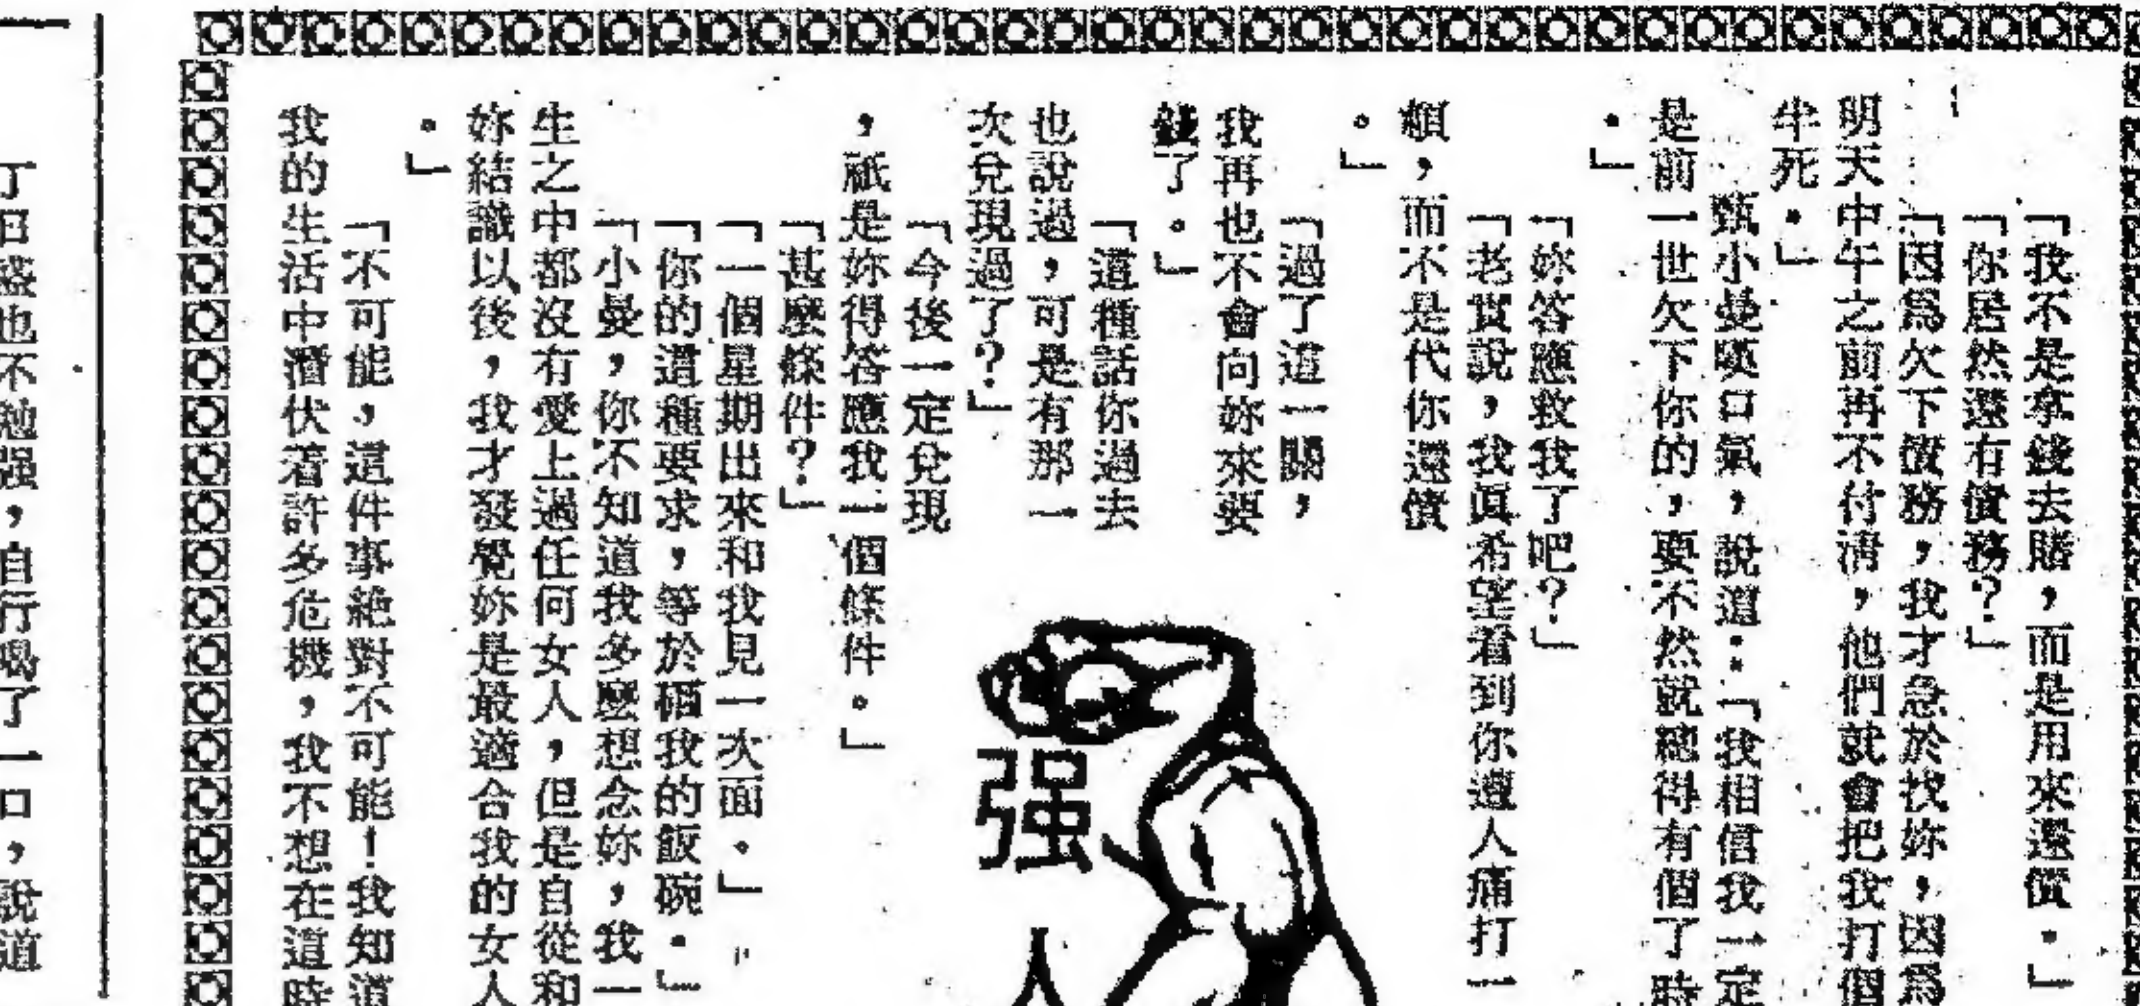 「我不是拿錢去賭，而是用來還債。」
「你居然還有債務？」
「因爲欠下債務，我才急於找妳，因爲
明天中午之前再不付清，他們就會把我打個
半死。」
甄小曼嘆口氣，說道：「我相信我一定
是前一世欠下你的，要不然就總得有個了時
。」
「妳答應救我了吧？」
「老實說，我眞希望看到你遭人痛打一
頓，而不是代你還債
。」
「過了這一關，
我再也不會向妳來要
錢了。」
「這種話你過去
也說過，可是有那一
次兌現過了？」
「今後一定兌現
，祇是妳得答應我一個條件。」
「甚麼條件？」
「一個星期出來和我見一次面。」
「你的這種要求，等於砸我的飯碗。」
「小曼，你不知道我多麼想念妳，我一
生之中都沒有愛上過任何女人，但是自從和
妳結識以後，我才發覺妳是最適合我的女人
。」
「不可能，這件事絕對不可能！我知道
我的生活中潛伏着許多危機，我不想在這時
强
人
也不勉强，自行喝了一口，說道